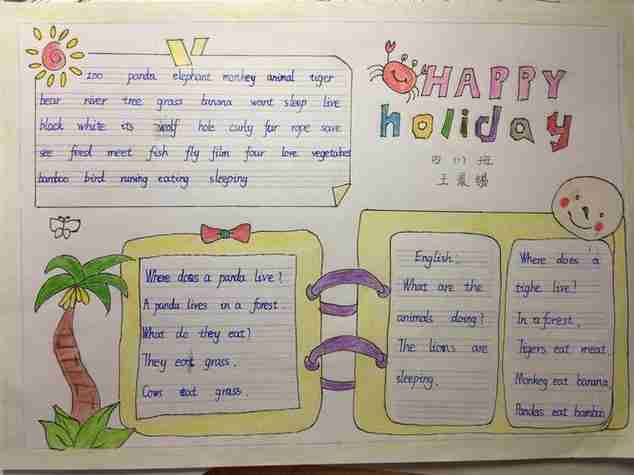 zoo panda elephant monkey animal tiger
bear river tree grass banana want sleep live
black white its wolf hole curly fur rope save
see feed meet fish fly film four love vegetables
bamboo bird runing eating sleeping
HAPPY
holiday
四 班
王
Where does a panda live?
A panda lives in a forest.
What do they eat?
They eat grass.
Cows eat grass.
English.
What are the
animals doing?
The lions are
sleeping.
Where does a
tighe live?
In a forest.
Tigers eat meat.
Monkey eat banana.
Pandas eat bamboo